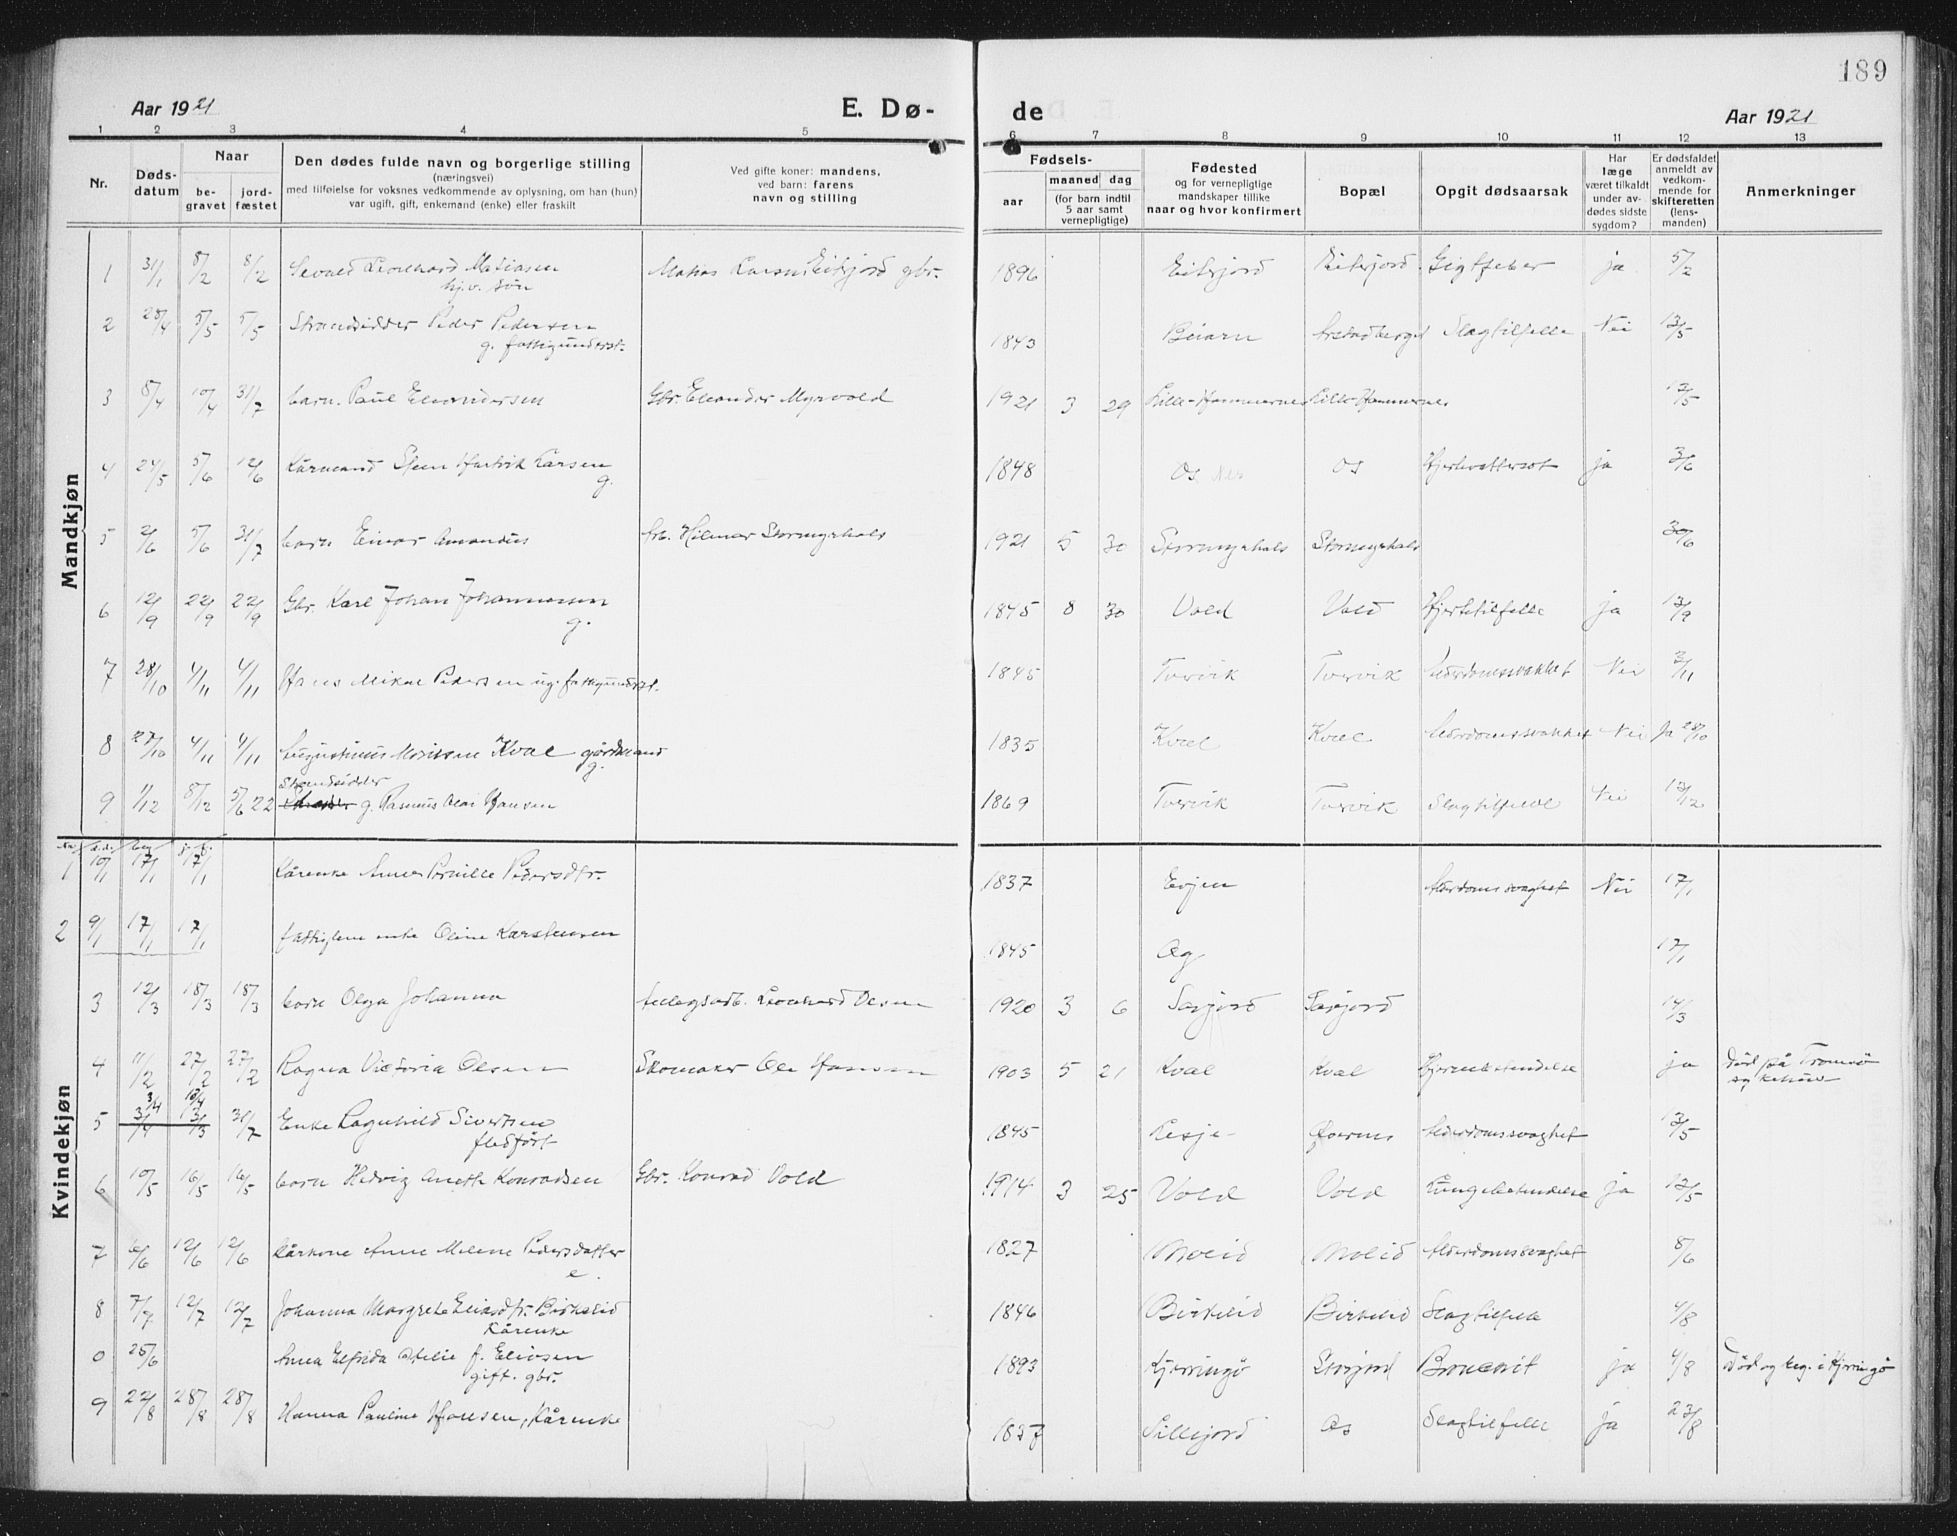 189
Aar 1921 E. Dø- de Aar 1921
1 2 3 4 5 6 7 8 9 10 11 12 13
Nr. Døds-datum Naar be-gravet jord-fæstet
Den dødes fulde navn og borgerlige stilling
(næringsvei)
med tilføielse for voksnes vedkommende av oplysning, om han (hun)
var ugift, gift, enkemand (enke) eller fraskilt
Ved gifte koner: mandens,
ved barn: farens
navn og stilling
Fødsels- aar maaned dag
(for barn indtil
5 aar samt
vernepligtige)
Fødested
og for vernepligtige
mandskaper tillike
naar og hvor konfirmert
Bopæl
Opgit dødsaarsak
Har
læge
været tilkaldt
under av-
dødes sidste
sygdom?
Er dødsfaldet
anmeldt av
vedkom-
mende for
skifteretten
(lens-
manden)
Anmerkninger
Mandkjøn
1 31/1 8/2 8/2 Sevald Leonhard Matiasen Matias Larsen Eiterjord gbr. 1896 Eiterjord Eiterjord Gigtfeber ja 5/2
hj.v. søn
2 28/4 5/5 5/5 Strandsidder Peder Pedersen 1843 Beiarn Slagtilfelle Nei 13/5
g. fattigunderst.
3 8/4 10/4 31/7 barn. Paul Eleandersen Gbr. Eleander Myrvold 1921 3 29 Lille-Hammernes Lille-Hammernes 12/5
4 24/5 5/6 12/6 Kårmand Steen Hartvik Larsen 1848 Os Nes Os ja 3/6
g.
5 2/6 5/6 31/7 barn Einar Amandus Hilmar Stormyrhals 1921 5 30 Stormyrhals Stormyrhals 30/6
6 12/9 22/9 22/9 Gbr. Karl Johan Johannessen 1845 8 30 Vold Vold Hjertetilfelle ja 13/9
g.
7 28/10 4/11 4/11 Hans Mikal Pedersen ug. fattigunderst. 1845 Tvervik Tvervik Alderdomssvakhet Nei 3/11
8 27/10 4/11 4/11 Augustinus Moritsen Kval gårdmand 1835 Kval Kval Alderdomssvakhet Nei Ja 28/10
g.
Strandsidder
9 1/12 8/12 5/6 22 g. Rasmus Olai Hansen 1869 Tvervik Tvervik Slagtilfelle Nei 13/12
Kvindekjøn
1 10/1 17/1 17/1 Kårenke Anne Pernille Pedersdtr. 1837 Evjen Alderdomssvaghet Nei 17/1
2 9/1 17/1 17/1 fattiglem enke Oline Karstensen 1845 Ag 17/1
3 12/3 18/3 18/3 barn Olga Johanna Leonhard Olsen 1920 3 6 Savjord Savjord 14/3
4 11/2 27/2 27/2 Ragna Victoria Olsen Skomaker Ole Hansen 1903 5 21 Kval Kval ja Død på Tromsø
sykehus
3/4 10/4
5 3/4 3/3 31/7 Enke Ragnhild Sivertsen 1845 Lesje Alderdomssvaghet 13/5
flædført
6 10/5 16/5 16/5 barn Hedvig Aneth Konradsen Gbr. Konrad Vold 1914 3 25 Vold Vold Lungebetendelse ja 12/5
7 6/6 12/6 12/6 Kårkone Anne Melene Pedersdatter 1827 Moeid Moeid Alderdomssvaghet 8/6
e.
8 7/7 12/7 12/7 Johanna Margrete Eliasdtr. Birkelid 1846 Birkelid Birkelid Slagtilfelle 4/8
Kårenke
0 25/6 Anna Elfrida Otelie f. Eliasen 1893 Kjerringø Storjord Brucevit ja 4/8 Død og beg. i Kjerringø
gift. gbr.
9 22/8 28/8 28/8 Hanna Pauline Hansen, Kårenke 1837 Sillejord Os Slagtilfelle ja 23/8